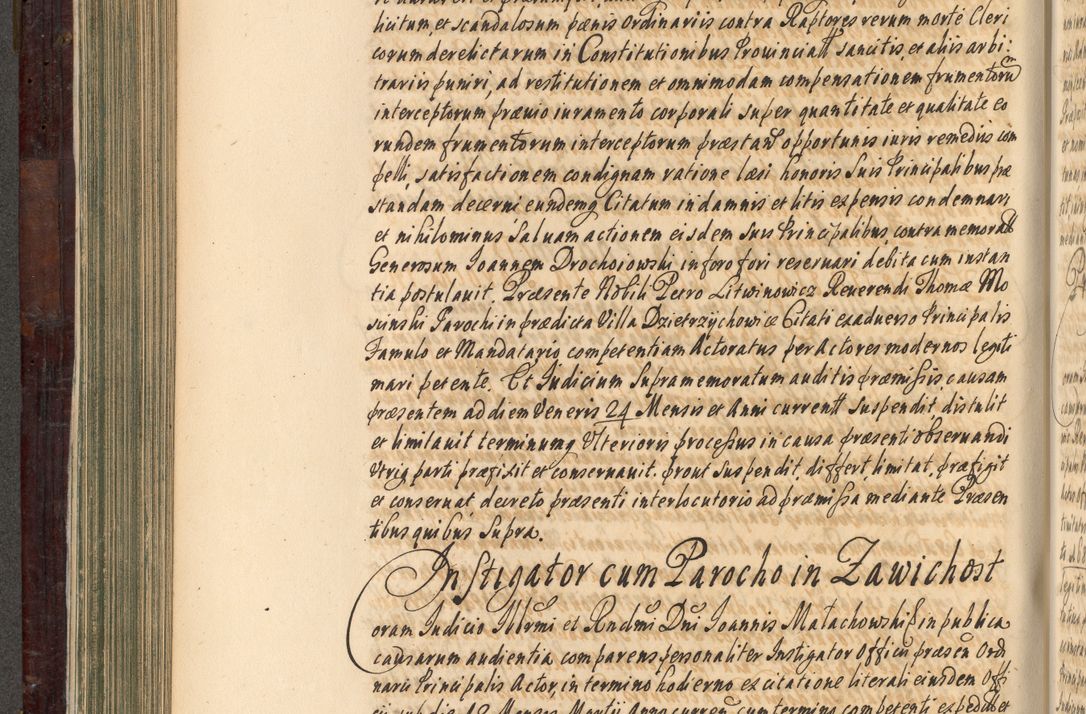 licitum, et scandalosum pænis Ordinariis contra Raptores rerum morte Cleri
corum derelictarum in Constitutionibus Provinciall sancitis, et aliis arbi:
trariis puniri, ad restitutionem et omnimodam compensationem frumentorum
interceptorum prævio iuramento corporali super quantitate et qualitate eo
rundem frumentorum interceptorum præstan opportunis iuris remediis com
pelli, satisfactionem condignam ratione læsi honoris Suis Principalibus præ
standam decerni eundemq Citatum in damnis et litis expensis condemnari,
et nihilominus saluam actionem eisdem suis Principalibus contra memorat
Generosum Ioannem Drochoiowski in foro fori reseruari debita cum instan
tia postulauit. Præsente Nobili Petro Litwinowicz Reuerendi Thomæ Mo
scinski Parochi in prædicta Villa Dzietrzychowicæ Citati ex aduerso Principalis
Famulo et Mandatario competentiam Actoratus per Actores modernos legiti
mari petente. Et Iudicium Supramemoratum auditis præmissis causam
præsentem ad diem Veneris 24 Mensis et Anni currentt suspendit, distulit
et limitauit terminumq Vlterioris processus in causa præsenti obseruandi
Vtriq parti præfixit et conseruauit. prout suspendit, differt, limitat, præfigit
et conseruat decreto præsenti interlocutorio ad præmissa mediante Præsen
tibus quibus supra.
Instigator cum Parocho in Zawichost
Coram Iudicio Illrmi et Rndmi Dni Ioannis Małachowski in publica
causarum audientia comparens personaliter Instigator Officii præsen Ordi
narii Principalis Actor, in termino hodierno ex citatione literali eiusdem Offi
cii sub die 12 Mensis Martii Anno curren cum termino competenti expedit et